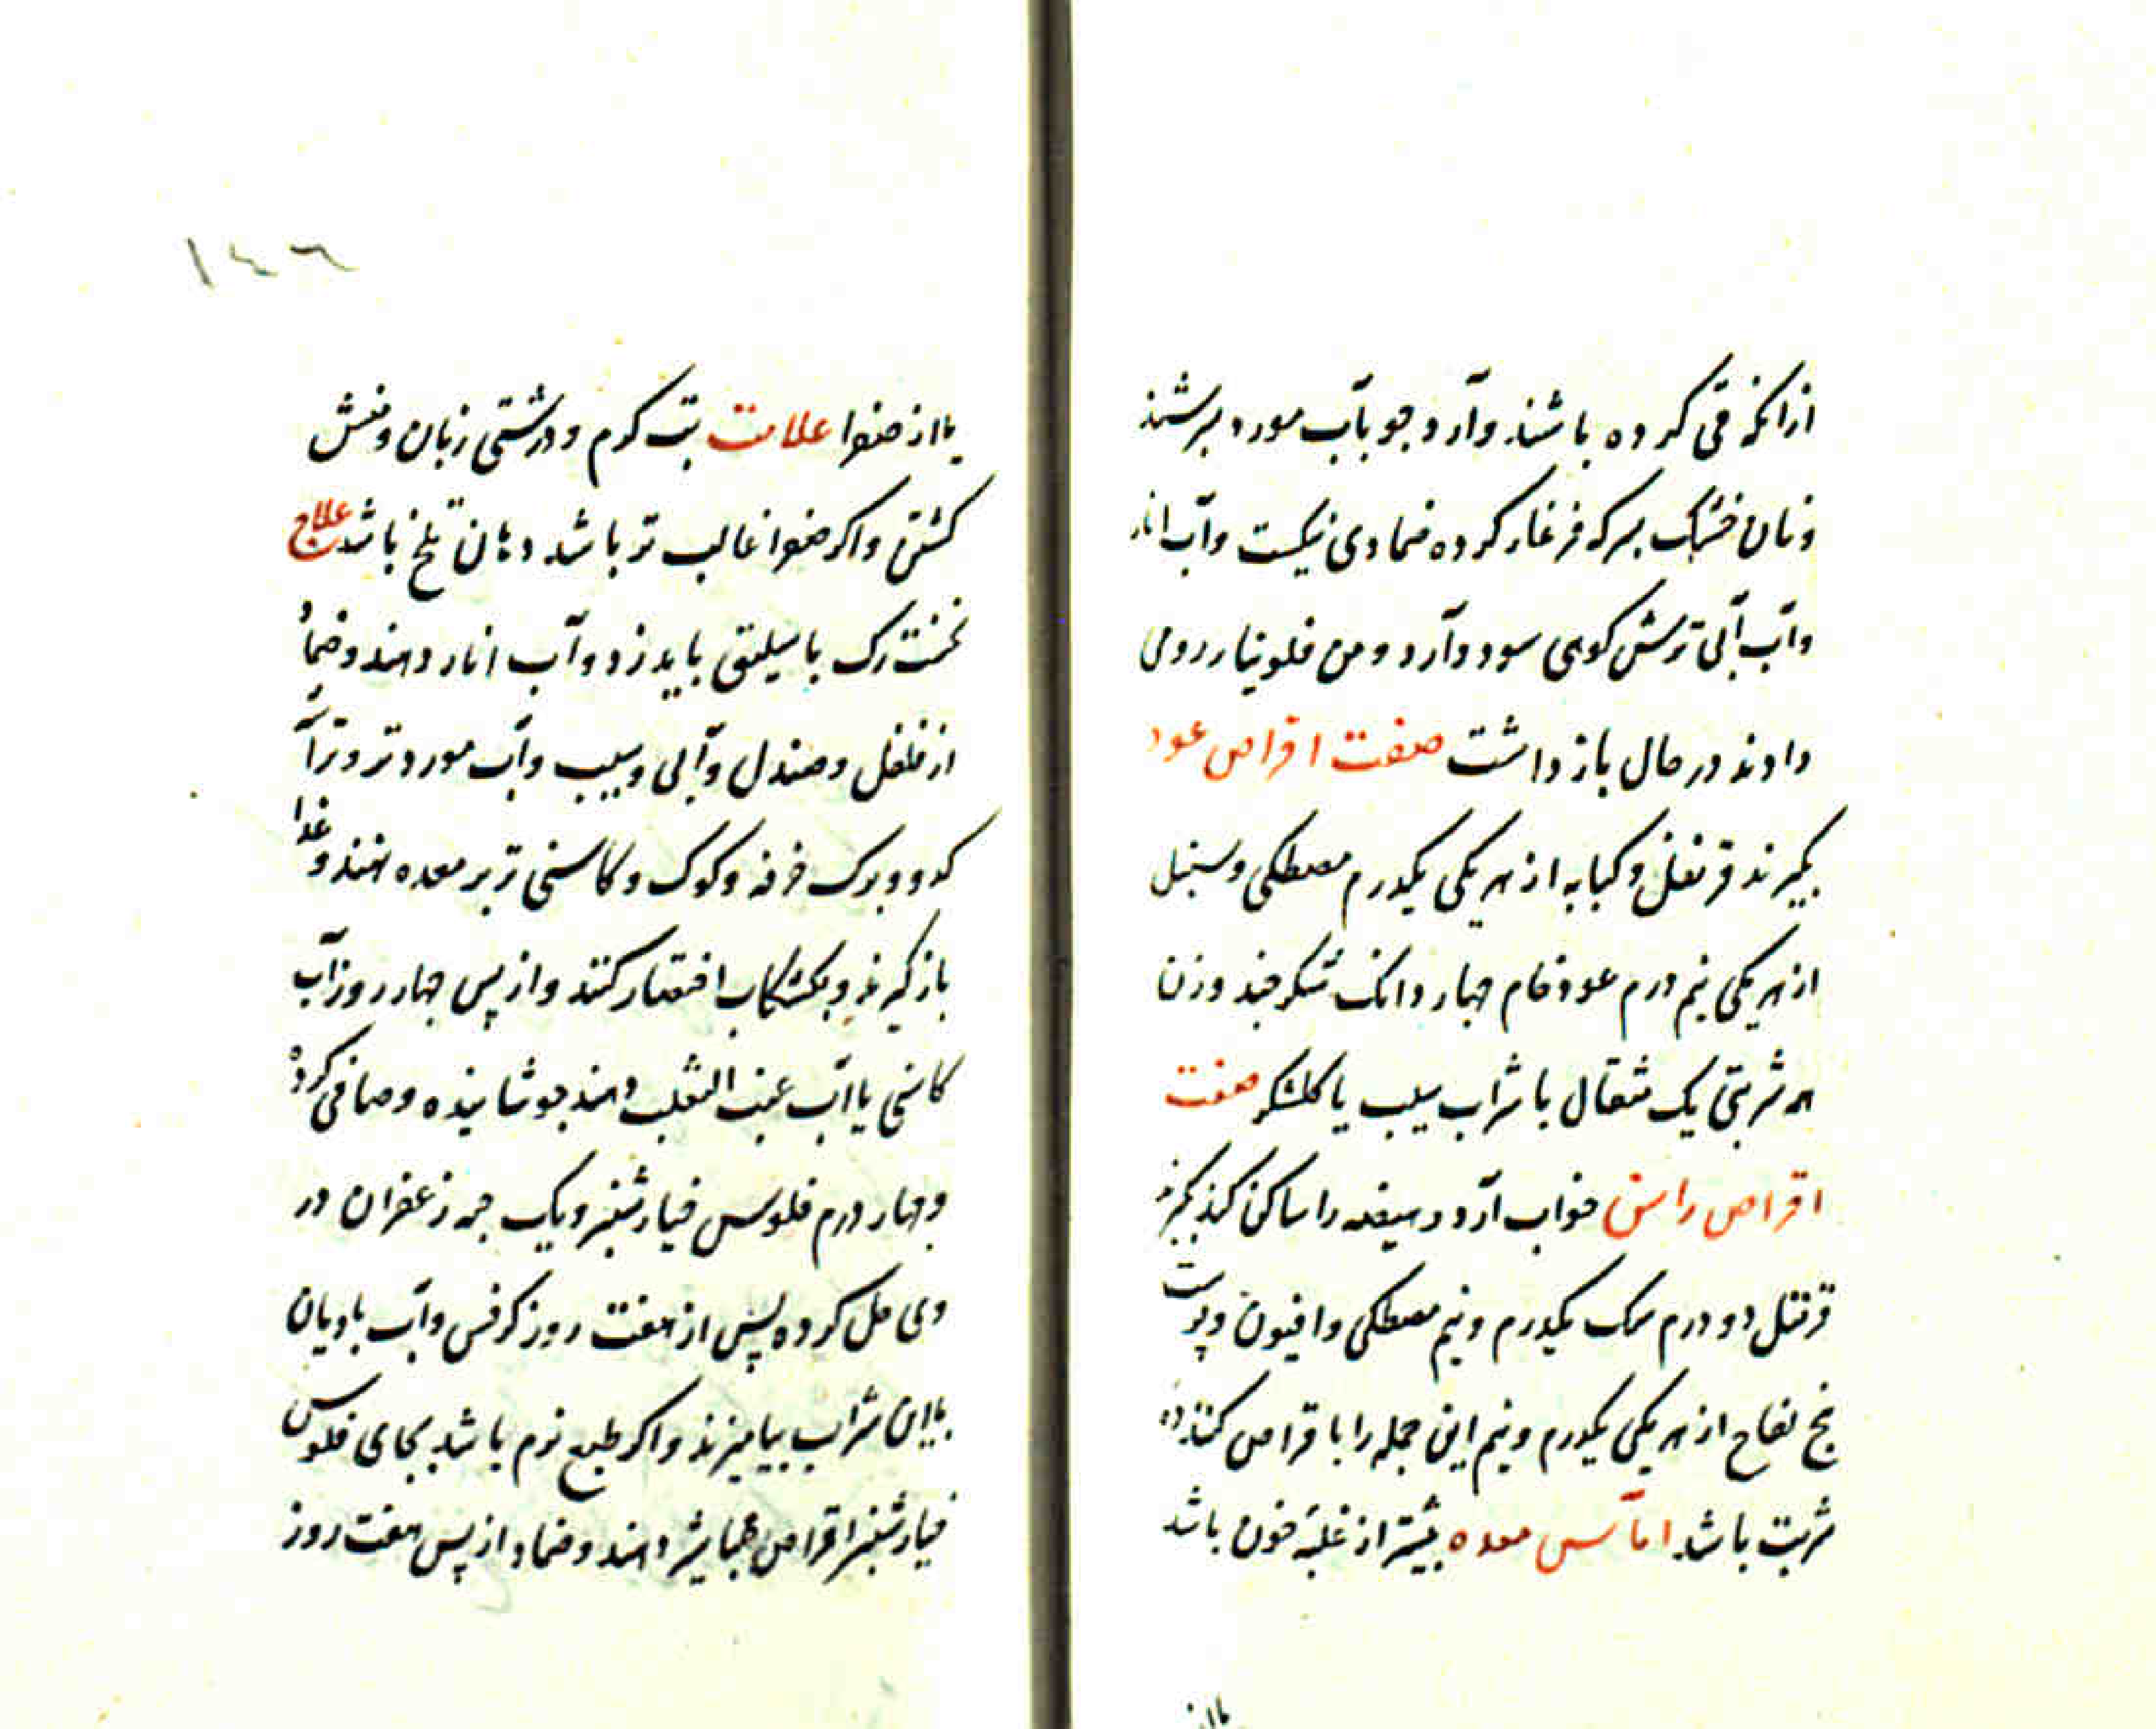 ازانکه قی کرده باشند وآرد جو بآب مورد بسرشند
ونان خشک بسرکه فرغار کرده ضمادی نیکست وآب انار
وآب آبی ترش کوهی سود دارد ومن فلونیاء رومی
دادند در حال باز داشت صفت اقراص عود
بگیرند قرنفل وکبابه از هر یکی یکدرم مصطکی وسنبل
از هر یکی نیم درم عود خام چهار دانک شکر چند وزن
هر شربتی یک مثقال با شراب سیب یا کلشکر صفت
اقراص راسن خواب آرد وهیضه را ساکن کند بکیرند
قرنفل دو درم سک یکدرم ونیم مصطکی وافیون وپوست
بیخ تفاح از هر یکی یکدرم ونیم این جمله را با قراص کنند ده
شربت باشد اماس معده بیشتر از غلبه خون باشد
یا از
۱٤٦
یا از صفرا علامت تب کرم ودرشتی زبان ومنش
کشتن واکر صفرا غالب تر باشد دهان تلخ باشد علاج
نخست رک باسلیق باید زد وآب انار دهند وضماد
از فلفل وصندل وآبی وسیب وآب مورد تر وتراشه
کدو وبرک خرفه وکوک وکاسنی تر بر معده نهند وغذا
باز کیرند وبکشکاب اختصار کنند واز پس چهار روز آب
کاسنی یا آب عنب الثعلب دهند جوشانیده وصافی کرده
وچهار درم فلوس خیارشنبر ویک حبه زعفران در
وی حل کرده پس از هفت روز کرفس وآب بادیان
با این شراب بیامیزند واکر طبع نرم باشد بجای فلوس
خیارشنبر اقراص طباشیر دهند وضماد از پس هفت روز